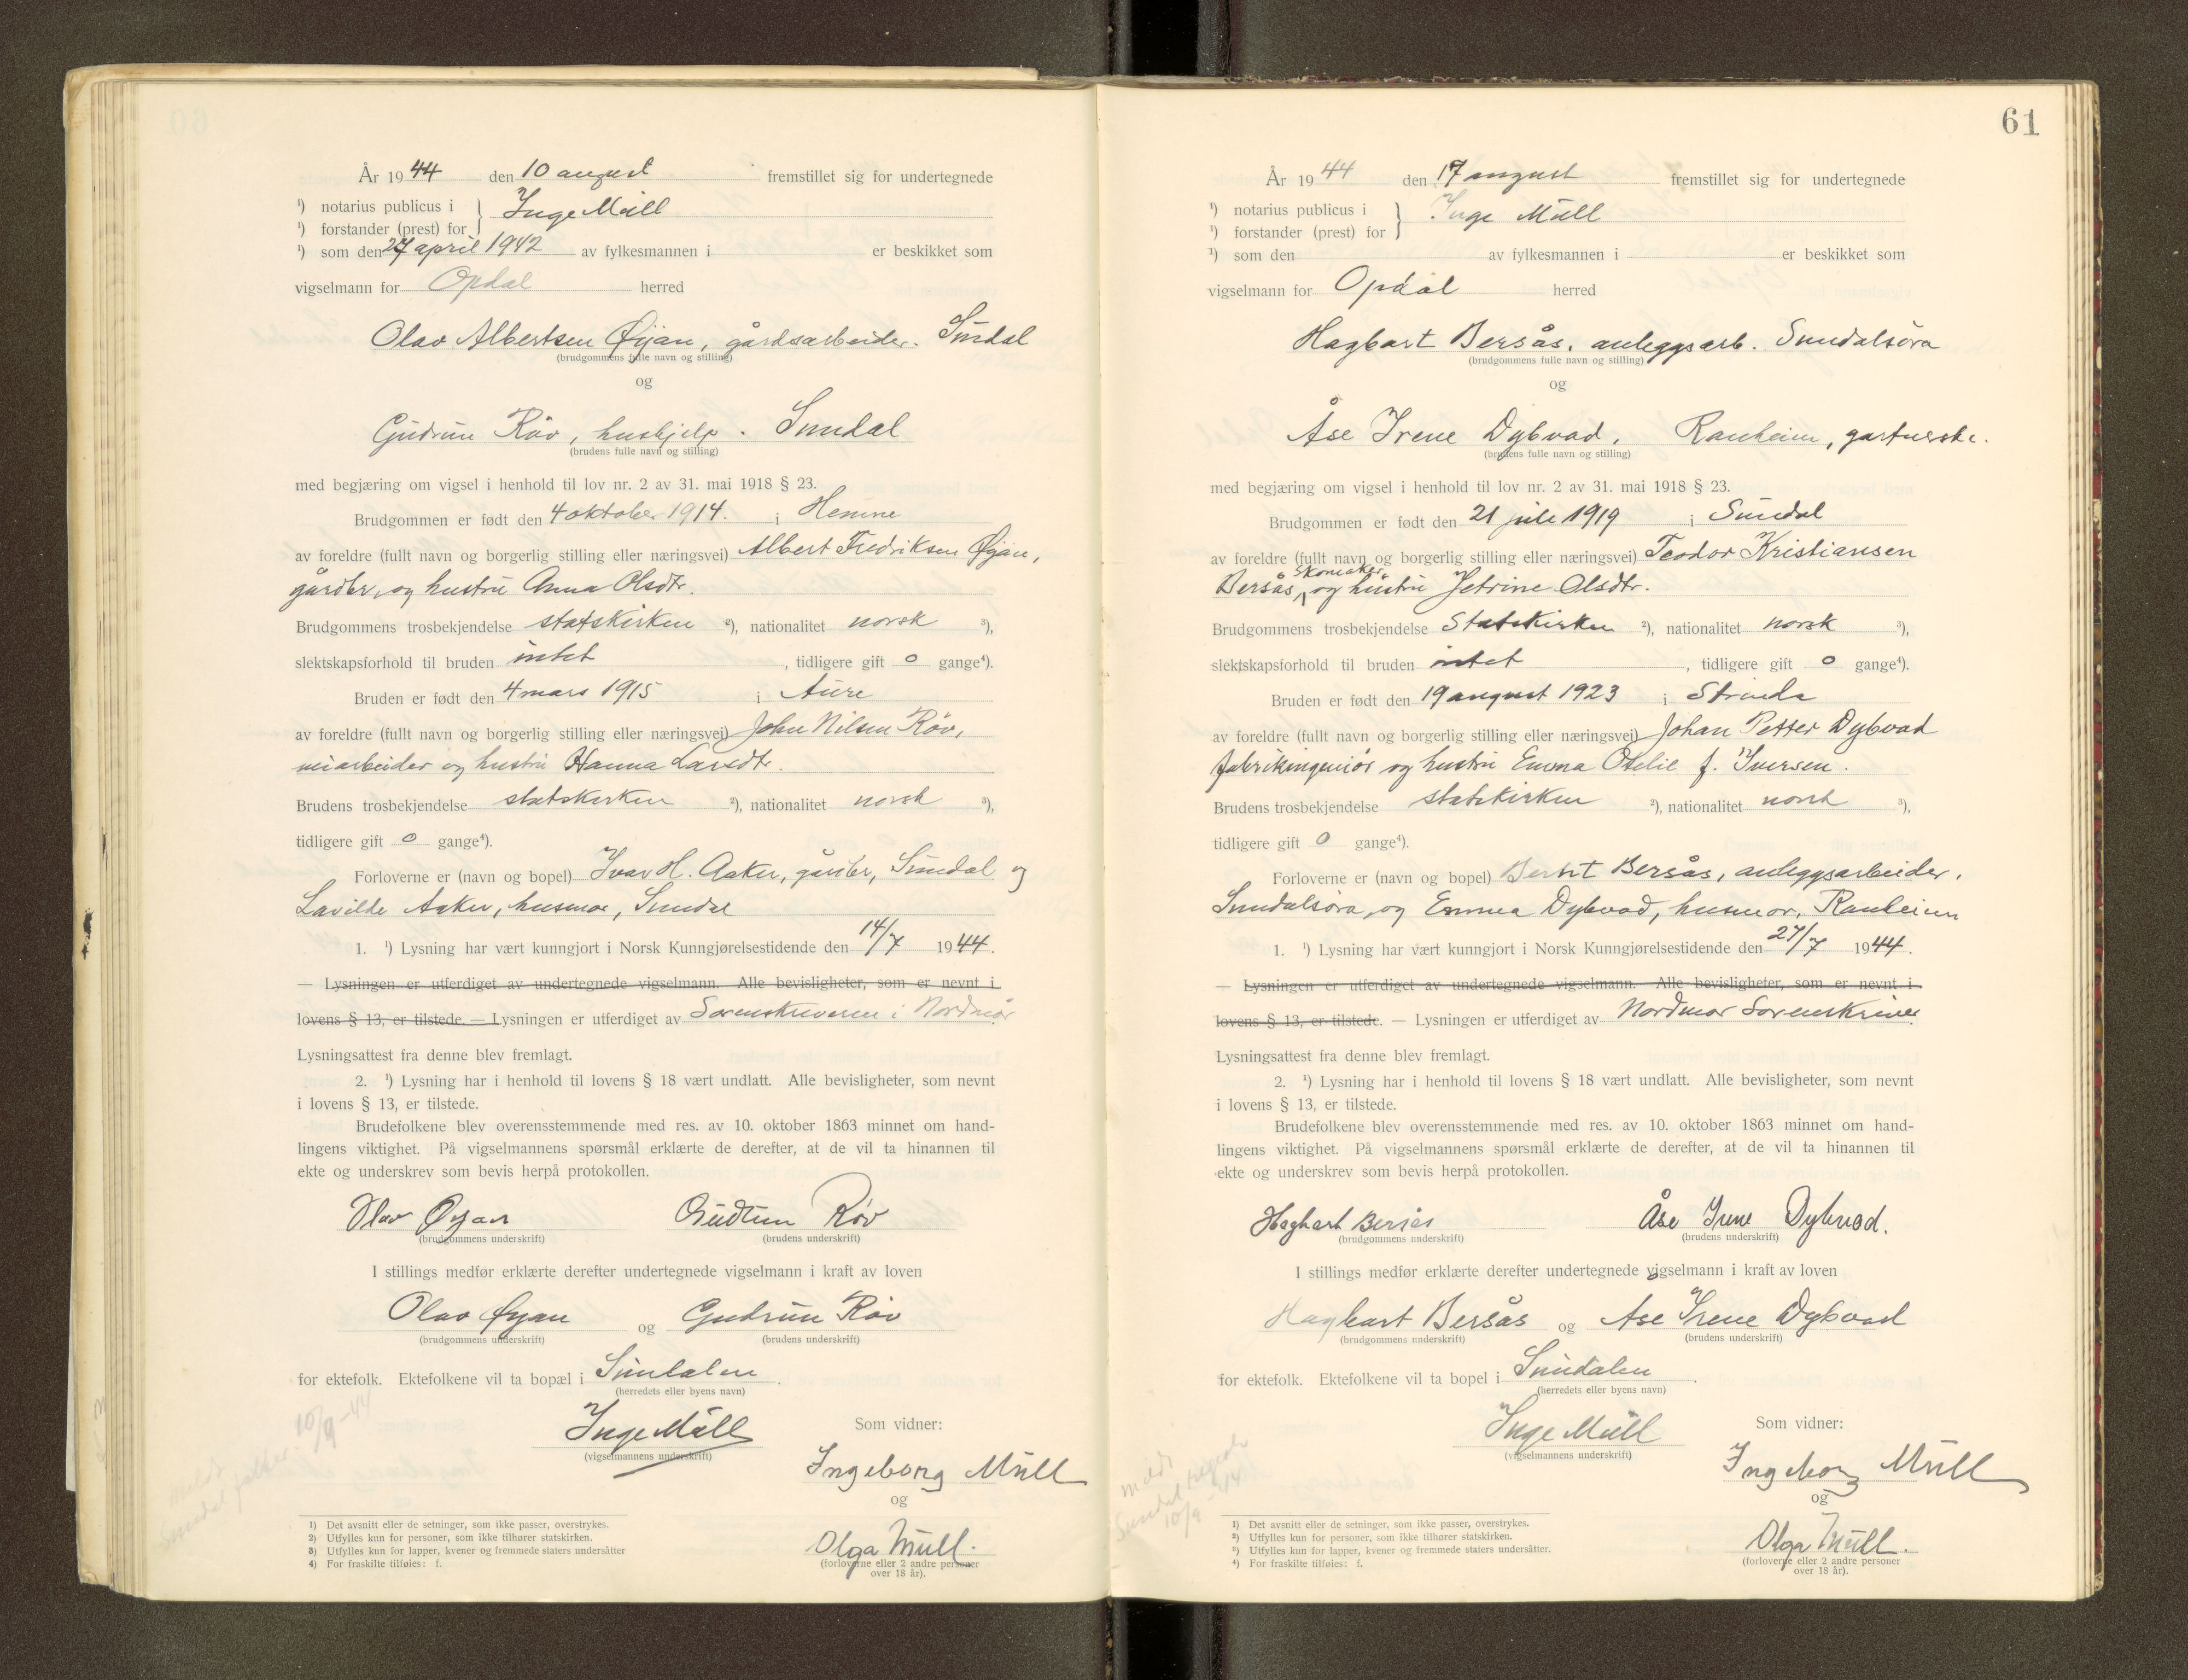 År 1944 den 10 august fremstillet sig for undertegnede
¹) notarius publicus i } Inge Müll
¹) forstander (prest) for
¹) som den 27 april 1942 av fylkesmannen i er beskikket som
vigselmann for Opdal herred
Olav Albertsen Øyan, gårdsarbeider. Sundal
(brudgommens fulle navn og stilling)
og
Gudrun Röv, hushjelp. Sundal
(brudens fulle navn og stilling)
med begjæring om vigsel i henhold til lov nr. 2 av 31. mai 1918 § 23.
Brudgommen er født den 4 oktober 1914. i Hemne
av foreldre (fullt navn og borgerlig stilling eller næringsvei) Albert Fredriksen Øyan,
gårdbr, og hustru Anna Olsdtr.
Brudgommens trosbekjendelse statskirken ²), nationalitet norsk ³),
slektskapsforhold til bruden intet, tidligere gift 0 gange⁴).
Bruden er født den 4 mars 1915 i Aure
av foreldre (fullt navn og borgerlig stilling eller næringsvei) John Nilsen Röv,
veiarbeider og hustru Hanna Larsdtr.
Brudens trosbekjendelse statskirken ²), nationalitet norsk ³),
tidligere gift 0 gange⁴).
Forloverne er (navn og bopel) Ivar H. Aaker, gårdbr, Sundal og
Lavilde Aaker, husmor, Sundal
1. ¹) Lysning har vært kunngjort i Norsk Kunngjørelsestidende den 14/7 1944.
— Lysningen er utferdiget av undertegnede vigselmann. Alle bevisligheter, som er nevnt i
lovens § 13, er tilstede. — Lysningen er utferdiget av Sorenskriveren i Nordmör
Lysningsattest fra denne blev fremlagt.
2. ¹) Lysning har i henhold til lovens § 18 vært undlatt. Alle bevisligheter, som nevnt
i lovens § 13, er tilstede.
Brudefolkene blev overensstemmende med res. av 10. oktober 1863 minnet om hand-
lingens viktighet. På vigselmannens spørsmål erklærte de derefter, at de vil ta hinannen til
ekte og underskrev som bevis herpå protokollen.
Olav Øyan Gudrun Röv
(brudgommens underskrift) (brudens underskrift)
I stillings medfør erklærte derefter undertegnede vigselmann i kraft av loven
Olav Øyan og Gudrun Röv
(brudgommens underskrift) (brudens underskrift)
for ektefolk. Ektefolkene vil ta bopæl i Sundalen.
(herredets eller byens navn)
10/9-44
Inge Müll Som vidner:
(vigselmannens underskrift)
Ingeborg Müll
og
Olga Müll.
(forloverne eller 2 andre personer
over 18 år).
meldt
Sundal
1) Det avsnitt eller de setninger, som ikke passer, overstrykes.
2) Utfylles kun for personer, som ikke tilhører statskirken.
3) Utfylles kun for lapper, kvener og fremmede staters undersåtter
4) For fraskilte tilføies: f.
61
År 1944 den 17 august fremstillet sig for undertegnede
¹) notarius publicus i } Inge Müll
¹) forstander (prest) for
¹) som den av fylkesmannen i er beskikket som
vigselmann for Opdal herred
Hagbart Bersås, anleggsarb. Sundalsöra
(brudgommens fulle navn og stilling)
og
Åse Irene Dybvad, Ranheim, gartnerske.
(brudens fulle navn og stilling)
med begjæring om vigsel i henhold til lov nr. 2 av 31. mai 1918 § 23.
Brudgommen er født den 21 juli 1919 i Sundal
av foreldre (fullt navn og borgerlig stilling eller næringsvei) Teodor Kristiansen
Bersås, skomaker og hustru Jetrine Olsdtr.
Brudgommens trosbekjendelse Statskirken ²), nationalitet norsk ³),
slektskapsforhold til bruden intet, tidligere gift 0 gange⁴).
Bruden er født den 19 august 1923 i Strinda
av foreldre (fullt navn og borgerlig stilling eller næringsvei) Johan Petter Dybvad
fabrikingeniör og hustru Emma Otelie f. Iversen.
Brudens trosbekjendelse statskirken ²), nationalitet norsk ³),
tidligere gift 0 gange⁴).
Forloverne er (navn og bopel) Bersås, anleggsarbeider,
Sundalsöra, og Emma Dybvad, husmor, Ranheim
1. ¹) Lysning har vært kunngjort i Norsk Kunngjørelsestidende den 27/7 1944.
— Lysningen er utferdiget av undertegnede vigselmann. Alle bevisligheter, som er nevnt i
lovens § 13, er tilstede. — Lysningen er utferdiget av Nordmör Sorenskriver
Lysningsattest fra denne blev fremlagt.
2. ¹) Lysning har i henhold til lovens § 18 vært undlatt. Alle bevisligheter, som nevnt
i lovens § 13, er tilstede.
Brudefolkene blev overensstemmende med res. av 10. oktober 1863 minnet om hand-
lingens viktighet. På vigselmannens spørsmål erklærte de derefter, at de vil ta hinannen til
ekte og underskrev som bevis herpå protokollen.
Hagbart Bersås Åse Irene Dybvad.
(brudgommens underskrift) (brudens underskrift)
I stillings medfør erklærte derefter undertegnede vigselmann i kraft av loven
Hagbart Bersås og Åse Irene Dybvad
(brudgommens underskrift) (brudens underskrift)
for ektefolk. Ektefolkene vil ta bopel i Sundalen.
(herredets eller byens navn)
Inge Müll Som vidner:
(vigselmannens underskrift)
Ingeborg Müll
og
Olga Müll.
(forloverne eller 2 andre personer
over 18 år).
meldt
Sundal
10/9-44
¹) Det avsnitt eller de setninger, som ikke passer, overstrykes.
²) Utfylles kun for personer, som ikke tilhører statskirken.
³) Utfylles kun for lapper, kvener og fremmede staters undersåtter.
⁴) For fraskilte tilføies: f.